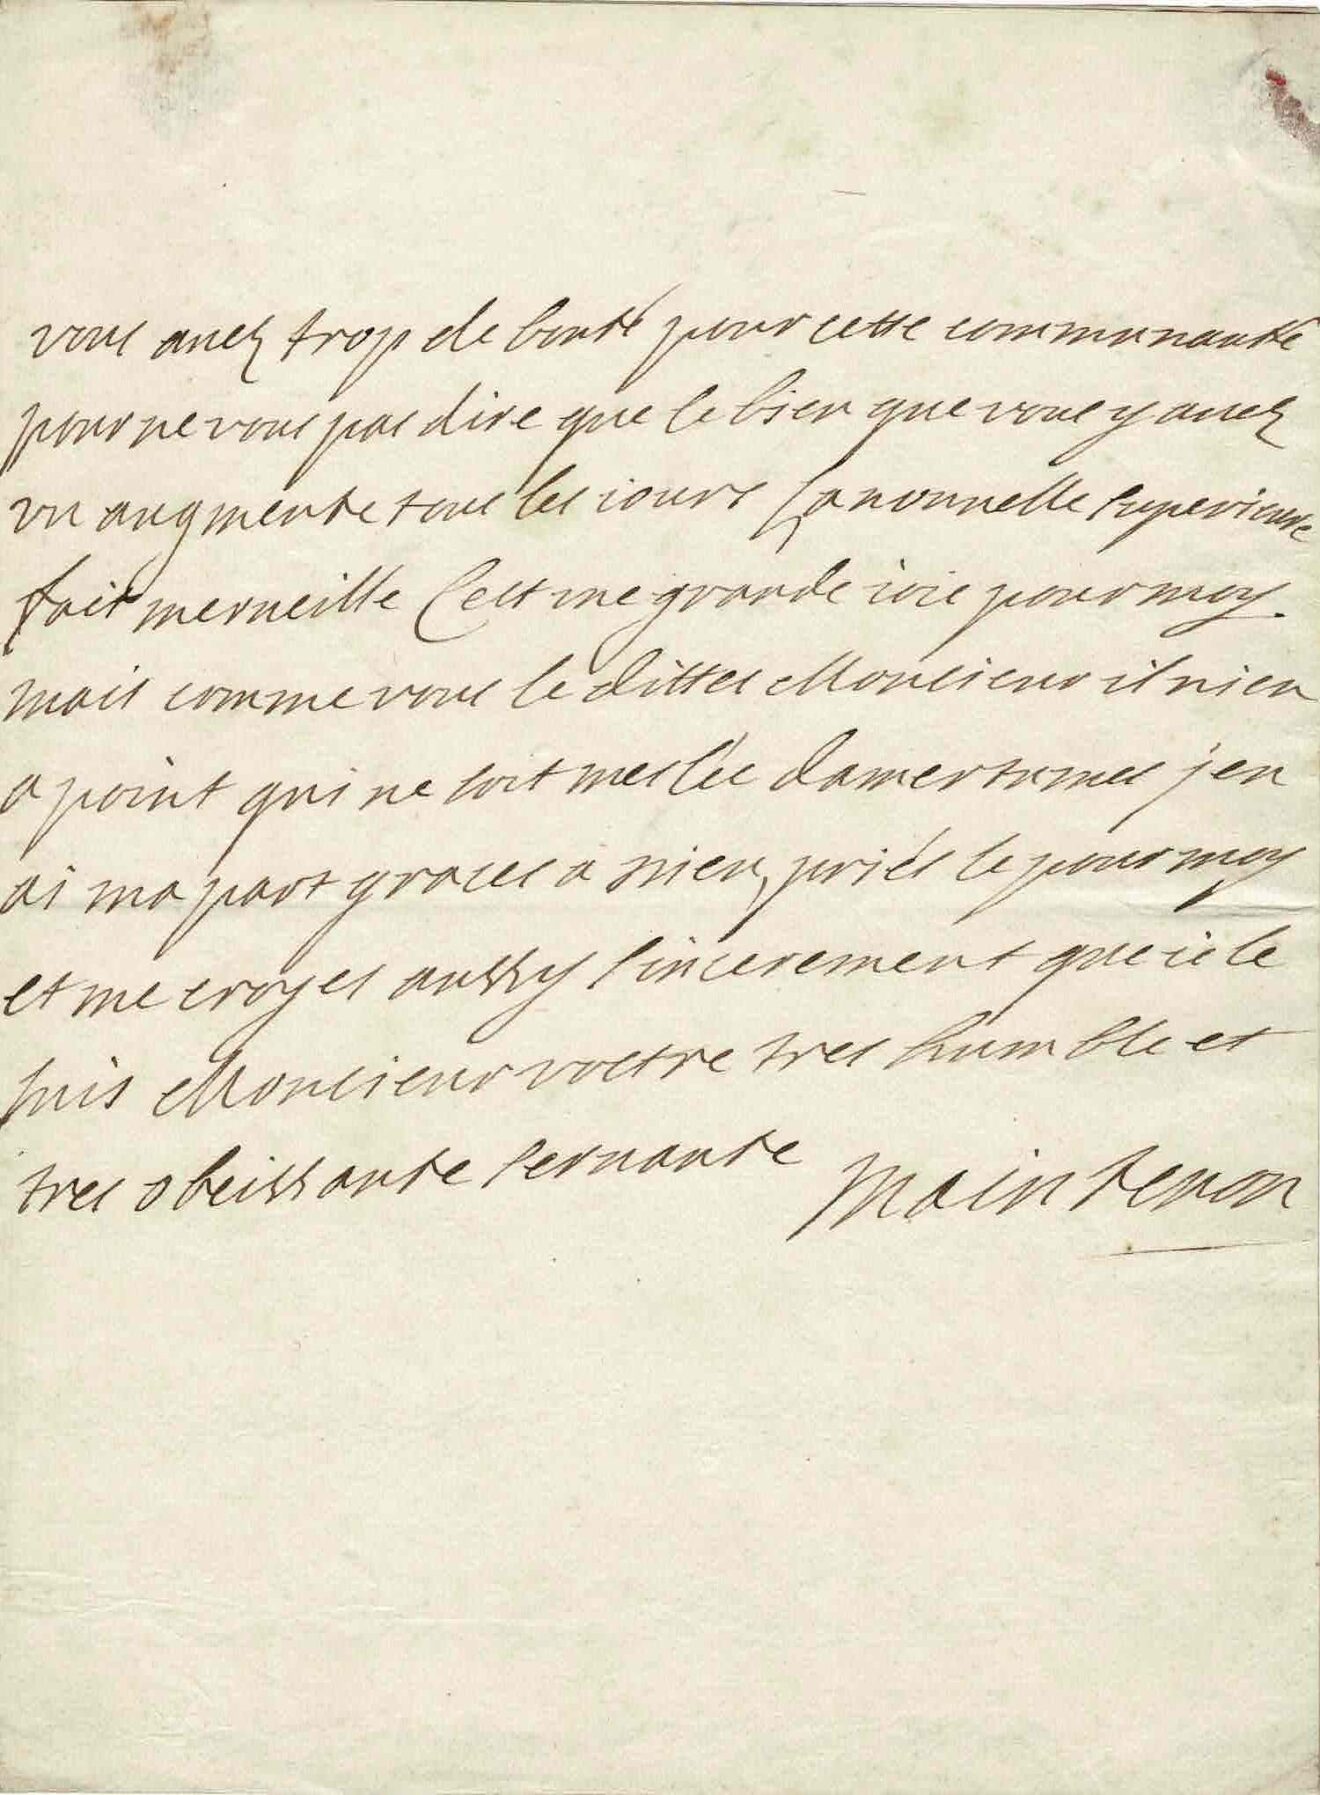 vous auez trop de bonté pour cette communauté
pour ne vous pas dire que le bien que vous y auez
vu augmente tous les iours la nouuelle superieure
fait merueille Cest une grande ioie pour moy
mais comme vous le dittes Monsieur il nien
a point qui ne soit meslée damertumes j'en
ai ma part graces a Dieu, priés le pour moy
et me croyes aussy sincerement que ie le
suis Monsieur vostre tres humble et
tres obeissante seruante Maintenon